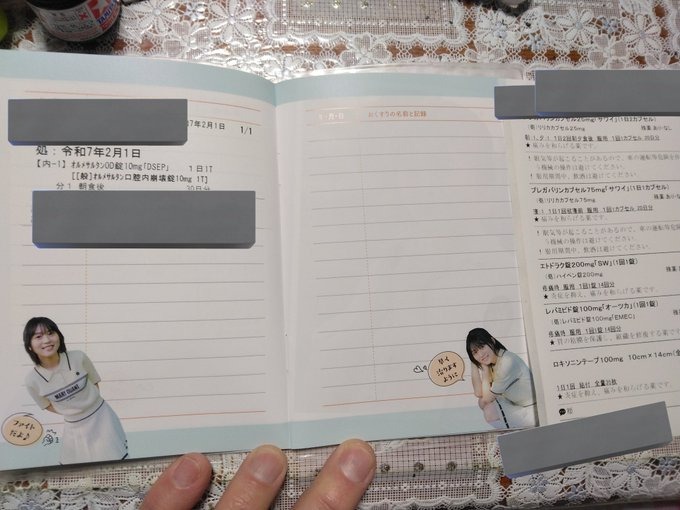 年2月1日 1/1
処：令和7年2月1日
【内-1】オルメサルタンOD錠10mg「DSEP」 1日1T
[【般】オルメサルタン口腔内崩壊錠10mg 1T]
分1 朝食後 30日分
MARY QUANT
ファイト
だよ♪
年・月・日 おくすりの名前と記録
早く
治ります
ように
プレガバリンカプセル25mg「サワイ」(1日1カプセル)
(先)リリカカプセル25mg 残薬 あり・なし
★痛みを和らげる薬です。
！眠気等が起こることがあるので、車の運転等危険を伴
う機械の操作は避けてください。
！服用期間中、飲酒は避けてください。
プレガバリンカプセル75mg「サワイ」(1日1カプセル)
(先)リリカカプセル75mg
★痛みを和らげる薬です。
！眠気等が起こることがあるので、車の運転等危険
う機械の操作は避けてください。
！服用期間中、飲酒は避けてください。
エトドラク錠200mg「SW」(1回1錠)
(先)ハイペン錠200mg
疼痛時 服用 1回1錠 14回分
★炎症を抑え、痛みを和らげる薬です。
レバミピド錠100mg「オーツカ」(1回1錠)
(先)レバミピド錠100mg「EMEC」
疼痛時 服用 1回1錠 14回分
★胃の粘膜を保護し、組織を修復する薬です。
ロキソニンテープ100mg 10cm×14cm
1日1回 貼付 全量21枚
★炎症を抑え、痛みを和らげる薬です。